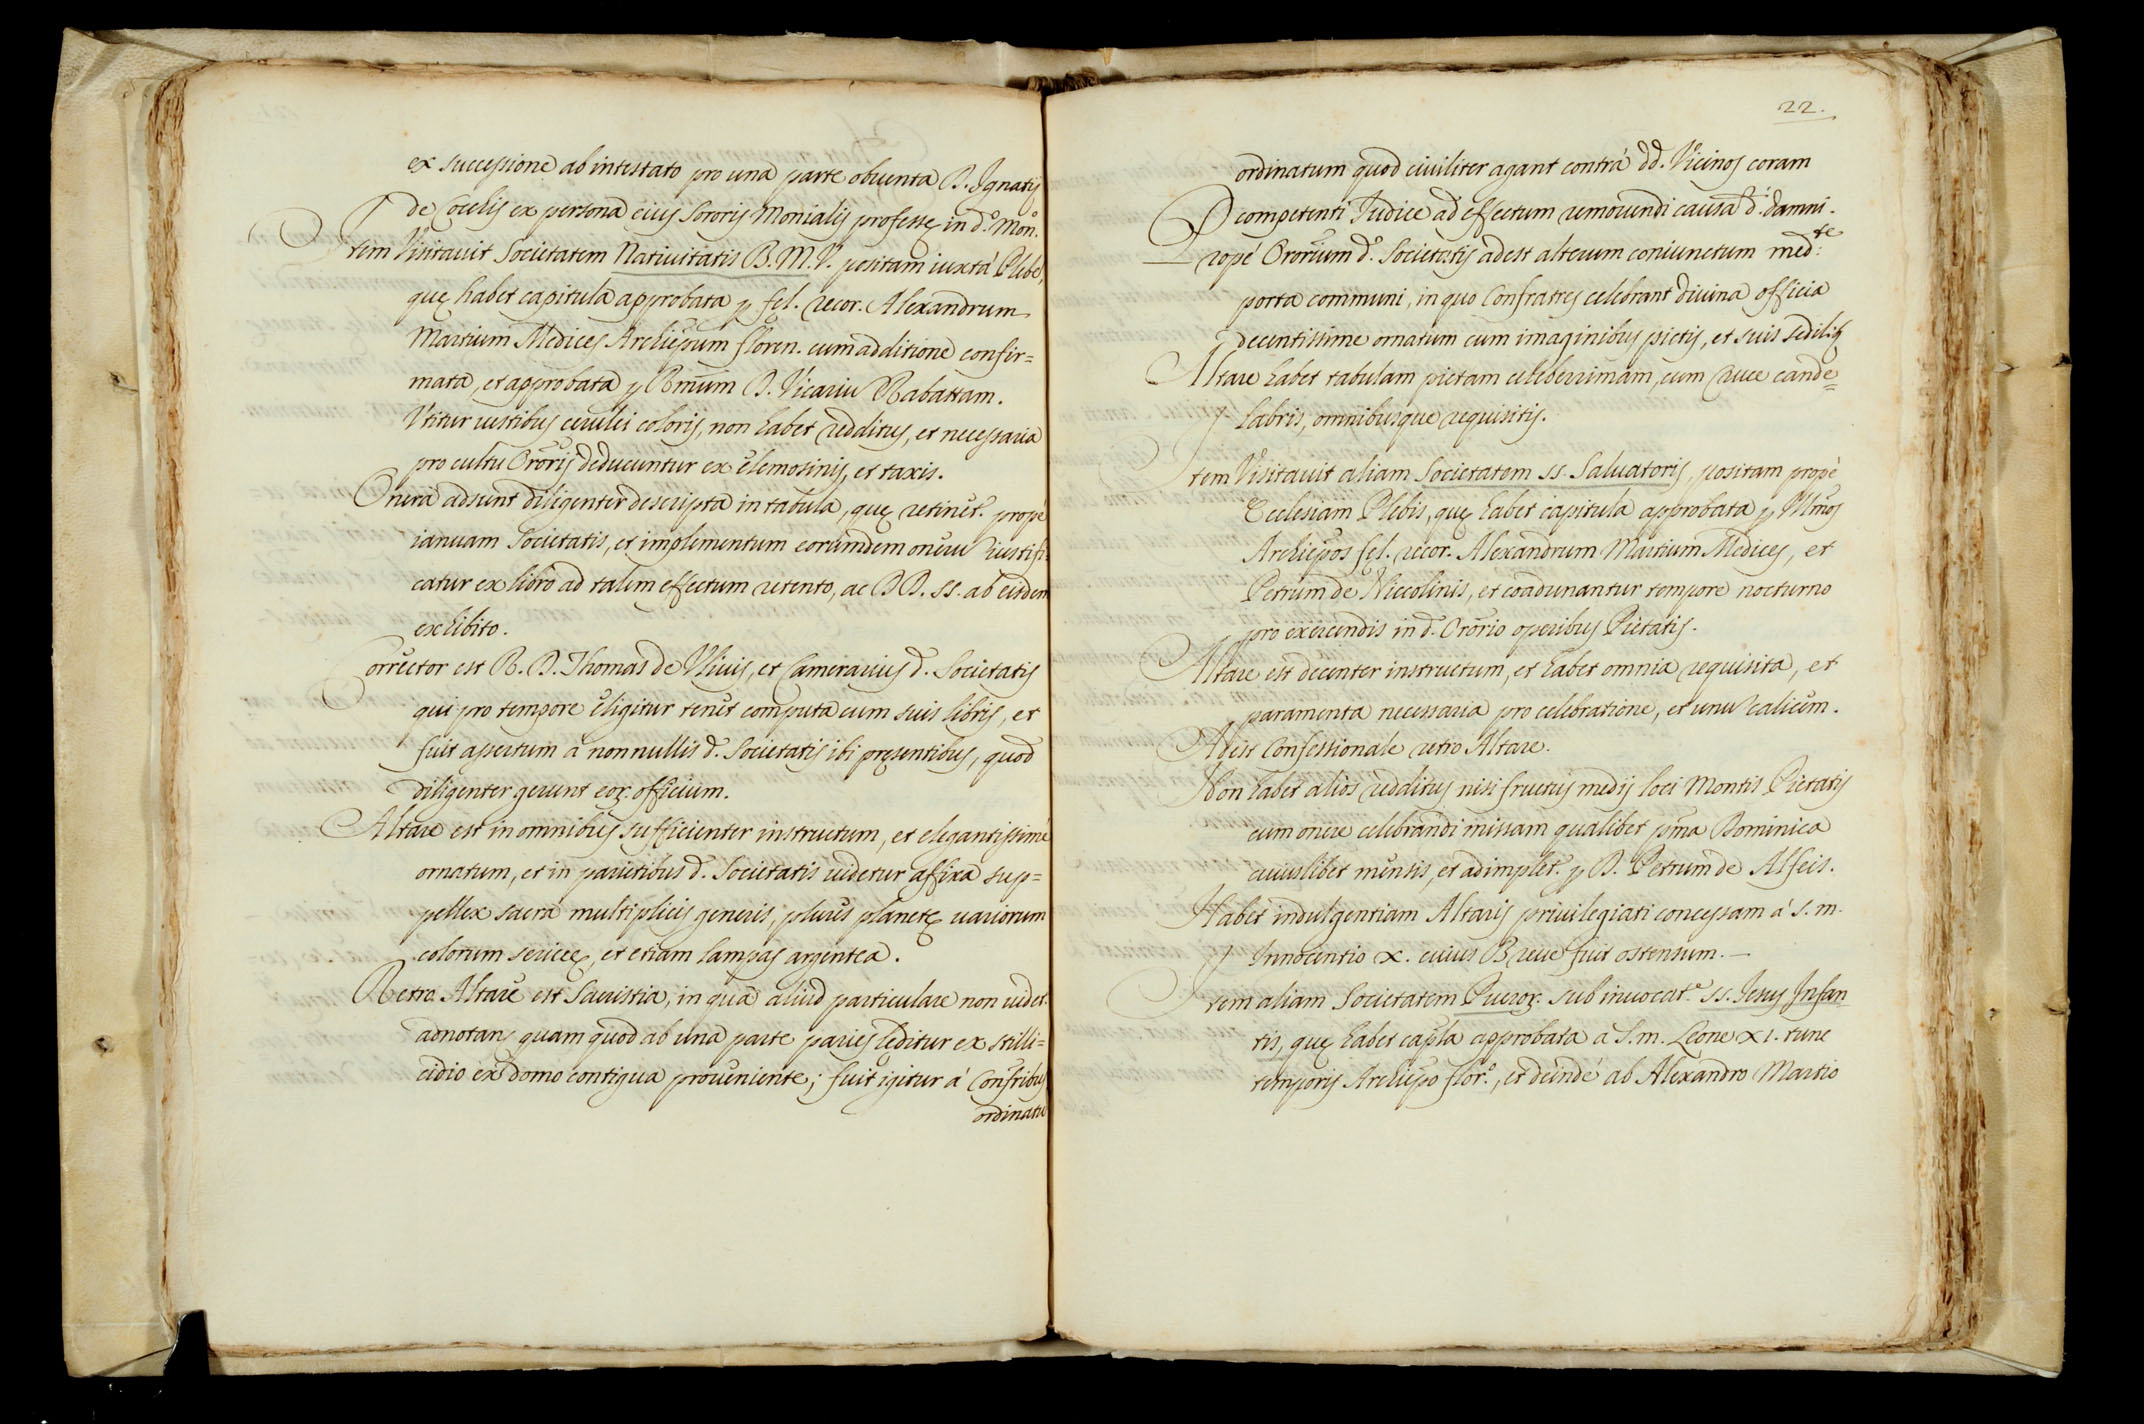 ex successione ab intestato pro una parte obuenta D. Ignatij
de Coelis ex persona eius Sororis Monialis professę in d.º Mon.º
Item Visitauit Societatem Natiuitatis B. M. V. positam iuxtà Plebē,
quę habet capitula approbata p fęl. recor. Alexandrum
Martium Medices Archiepum floren. cum additione confir=
mata, et approbata p Rmum D. Vicariū Rabattam.
Vtitur uestibus cerulei coloris, non habet redditus, et necessaria
pro cultu Ororij deducuntur ex elemosinis, et taxis.
Onera adsunt diligenter descripta in tabula, quę retinet. propè
ianuam Societatis, et implementum eorumdem onerū iustifi=
catur ex libro ad talem effectum retento, ac DD. SS. ab eisdem
exhibito.
Corrector est R. D. Thomas de Vliuis, et Camerarius d. Societatis
qui pro tempore eligitur tenet computa cum suis libris, et
fuit assertum à nonnullis d. Societatis ibi pręsentibus, quod
diligenter gerunt eoꝝ. officium.
Altare est in omnibus sufficienter instructum, et elegantissimè
ornatum, et in parietibus d. Societatis uidetur affixa sup=
pellex sacra multiplicis generis, plures planetę uariorum
colorum sericeę, et etiam lampas argentea.
Retro Altare est Sacristia, in qua aliud particulare non uidet.
adnotans quam quod ab una parte paries lęditur ex stilli=
cidio ex domo contigua proueniente; fuit igitur à Confribus
ordinatū
22.
ordinatum quod ciuiliter agant contrà dd. Vicinos coram
competenti Iudice ad effectum remouendi causã d. damni.
Propè Ororium d. Societatis adest alterum coniunctum med.te
porta communi, in quo Confratres celebrant diuina officia
decentissime ornatum cum imaginibus pictis, et suis sedilibꝫ
Altare habet tabulam pictam celeberrimam, cum cruce cande=
labris, omnibusque requisitis.
Item Visitauit aliam Societatem SS. Saluatoris, positam propè
Ecclesiam Plebis, quę habet capitula approbata p Illmos
Archiepos fęl. recor. Alexandrum Martium Medices, et
Petrum de Niccolinis, et coadunantur tempore nocturno
pro exercendis in d. Ororio operibus Pietatis.
Altare est decenter instructum, et habet omnia requisita, et
paramenta necessaria pro celebratione, et unū calicem.
Adest Confessionale retro Altare.
Non habet alios redditus nisi fructus medij loci Montis Pietatis
cum onere celebrandi missam qualibet pma Dominica
cuiuslibet mensis, et adimplet. p D. Petrum de Alfeis.
Habet indulgentiam Altaris priuilegiati concessam à S. m.
Innocentio X. cuius Breue fuit ostensum. —
Item aliam Societatem Pueroꝝ. sub inuocat.e SS. Iesus Infan
tis, quę habet capla approbata a S. m. Leone XI. tunc
temporis Archiepo flor.º, et deindè ab Alexandro Martio